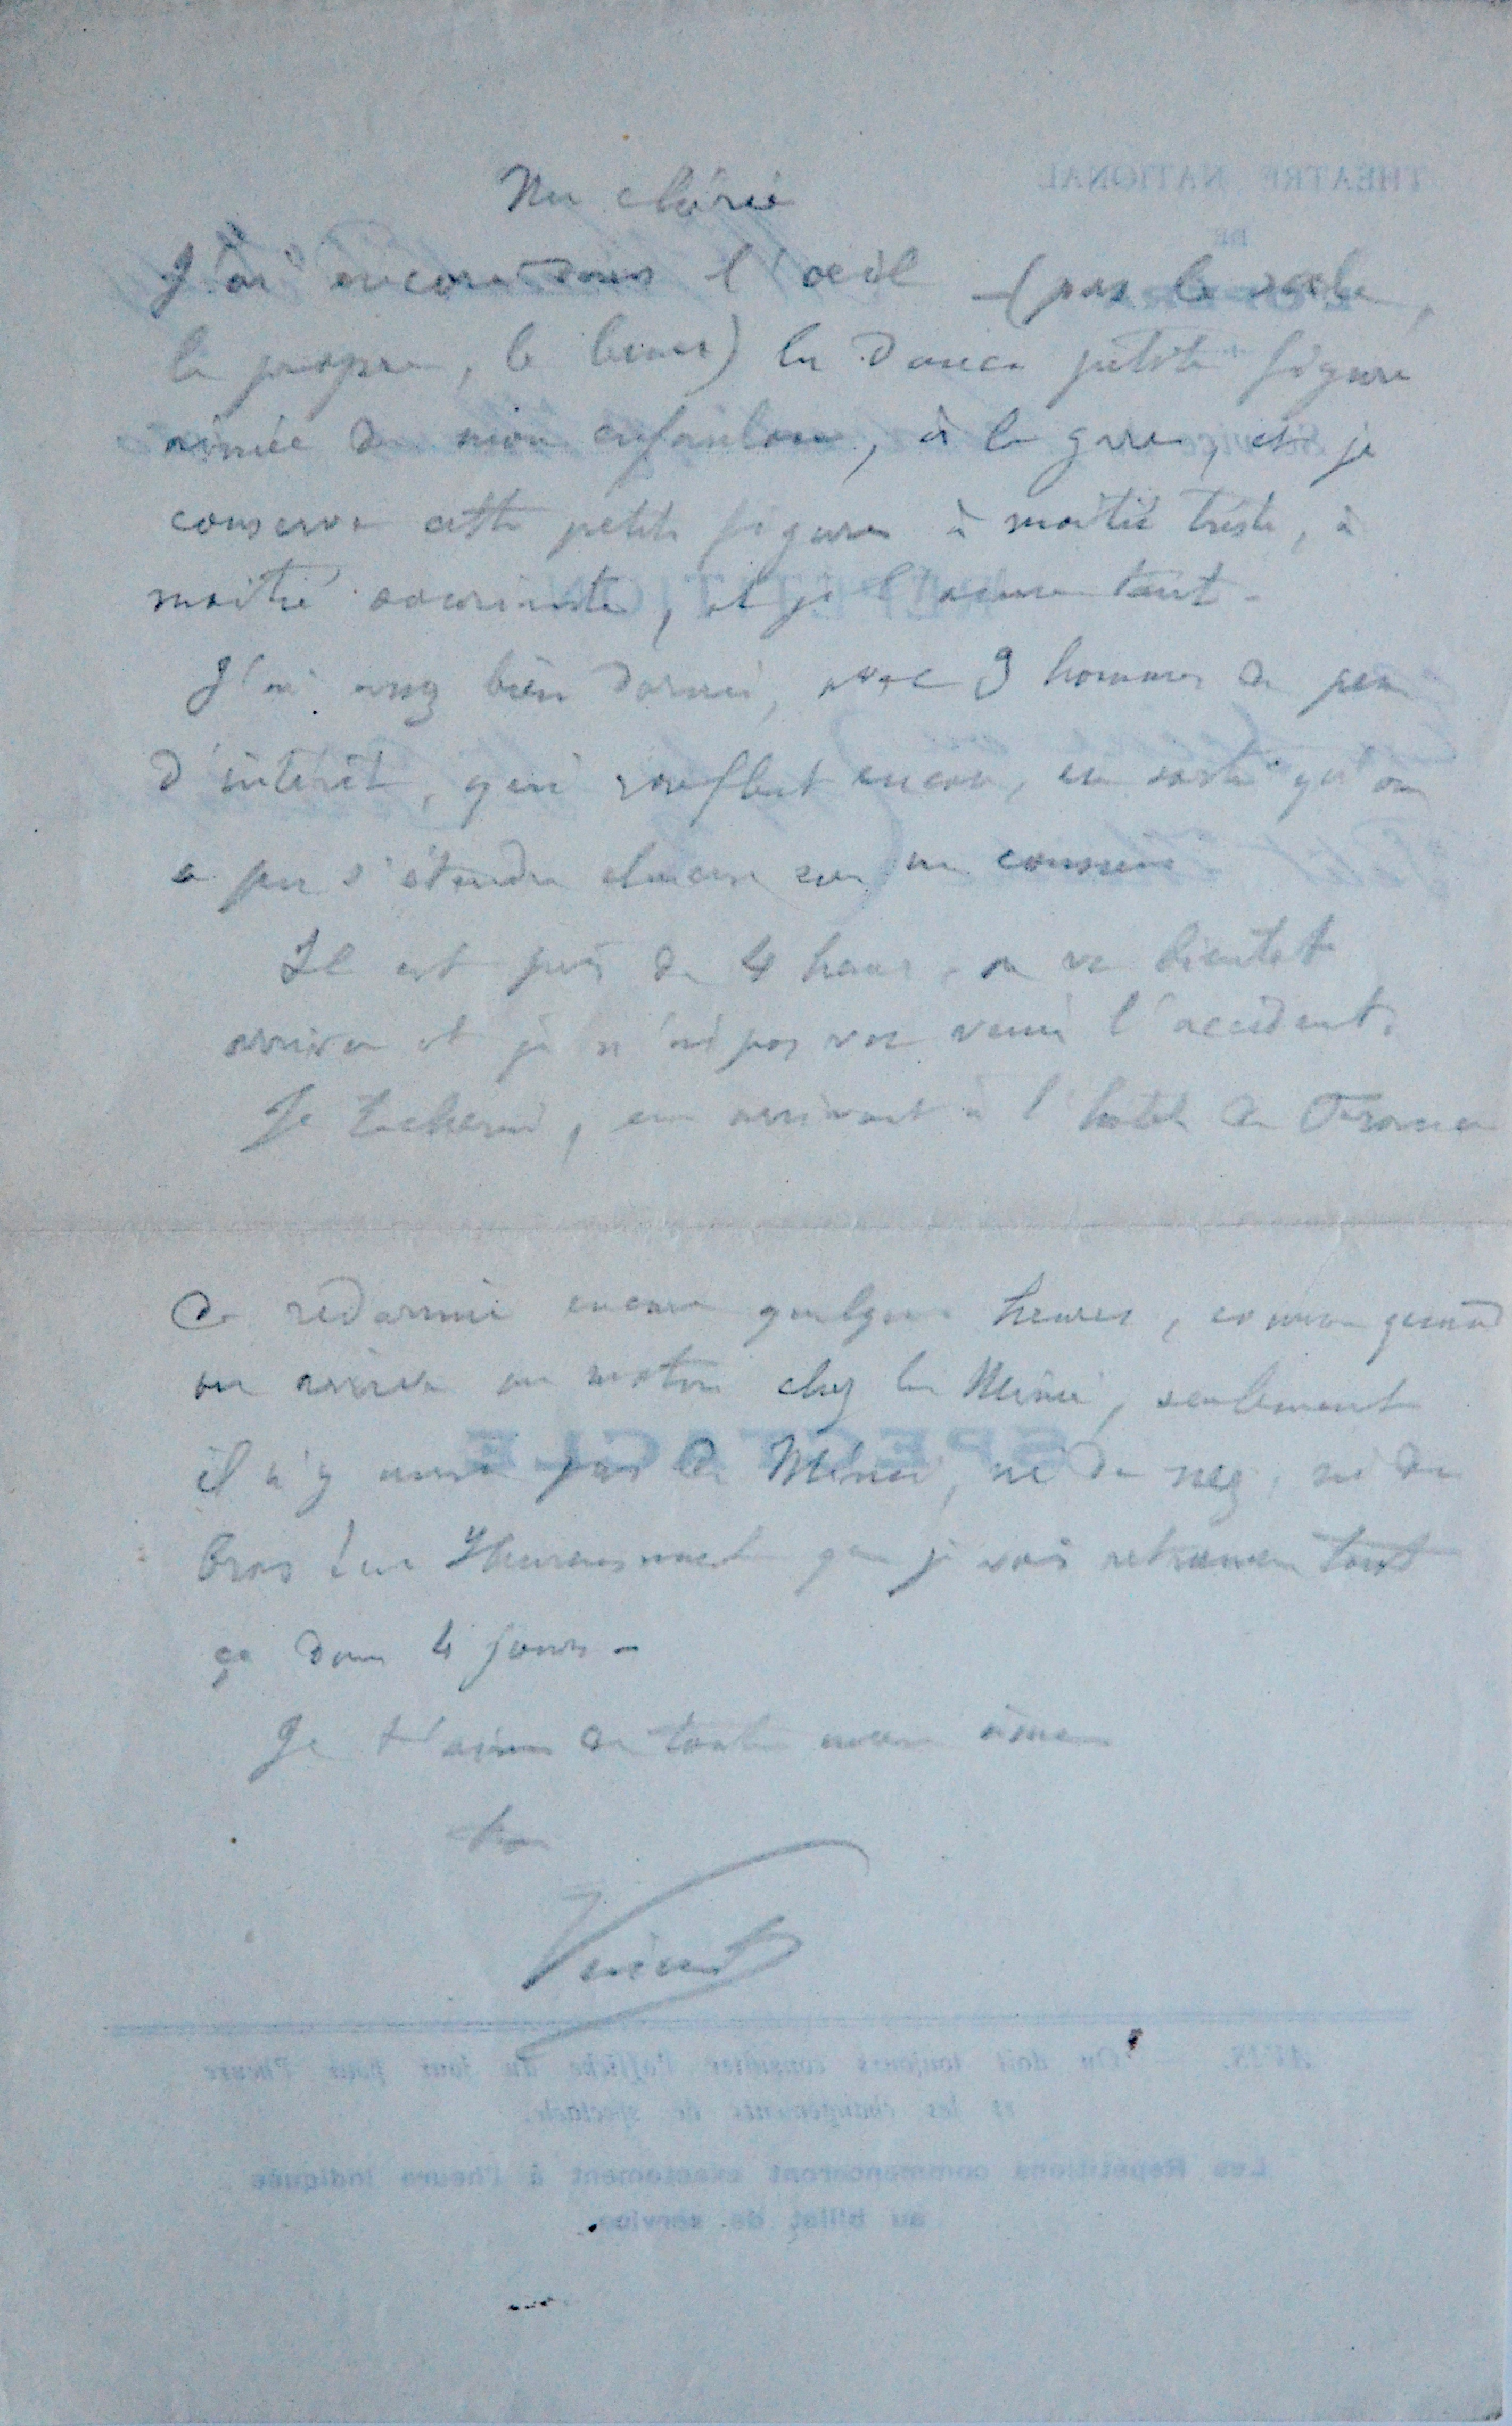 Ma chérie
J'ai encore dans l'œil (pas le sale,
le propre, le beau) la douce petite figure
aimée de mon enfantou, à la gare, et je
conserve cette petite figure à moitié triste, à
moitié souriante, et je l'aime tant -
J'ai assez bien dormi, avec 3 hommes de peu
d'intérêt, qui ronflent encore, en sorte qu'on
a pu s'étendre chacun sur un coussin
Il est près de 4 heures, on va bientôt
arriver et je n'ai pas vu venir l'accident.
Je tacherai, en arrivant à l'hotel de France
de redormir encore quelques heures, comme quand
on arrive au matin chez la Mimi, seulement
il n'y aura pas de Mimi, ni de nez, ni de
bras Heureusement que je vais retrouver tout
ça dans 4 jours -
Je t'aime de toute mon âme
ton
Vincent
THEATRE NATIONAL
DE
L'OPÉRA
REPETITION
SPECTACLE
AVIS. — On doit toujours consulter l'affiche du jour pour l'heure
et les changements de spectacle.
Les Repetitions commenceront exactement à l'heure indiquée
au billet de service